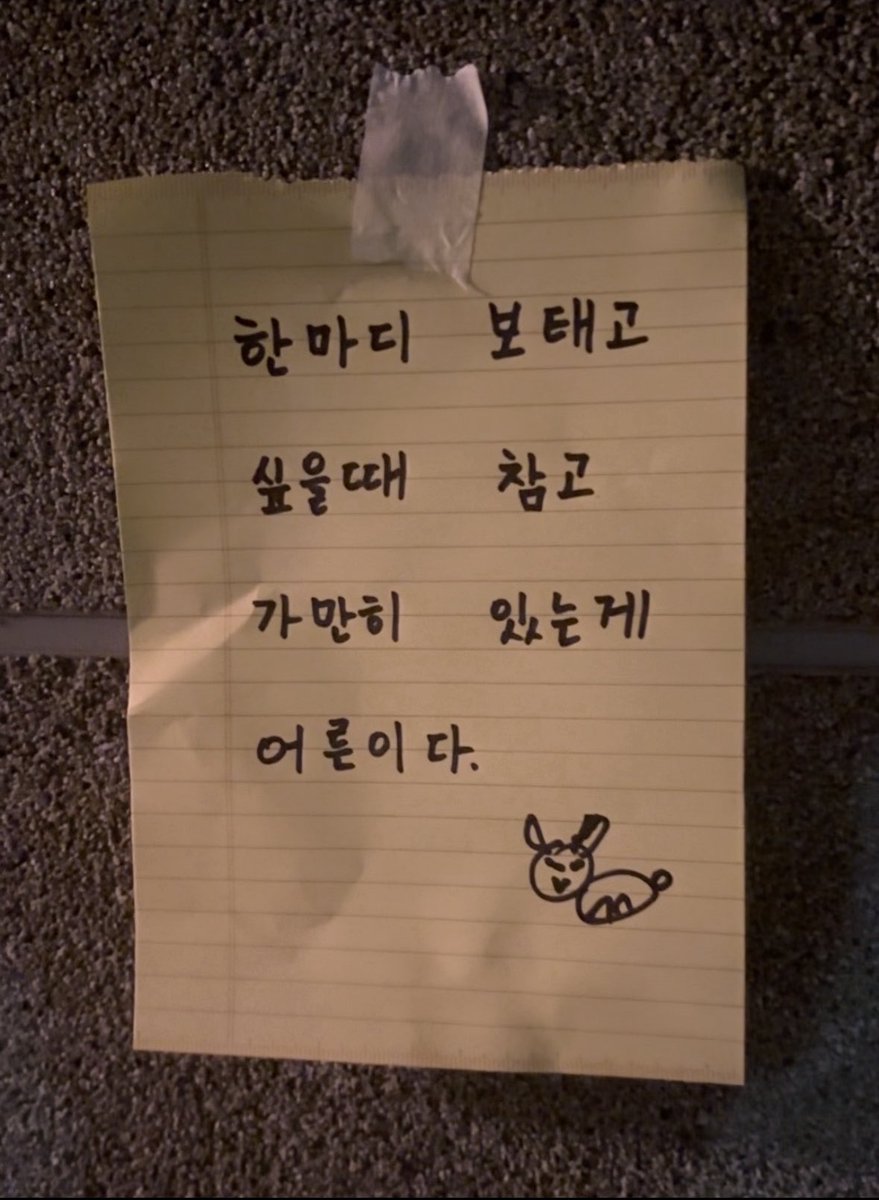 한마디 보태고
싶을때 참고
가만히 있는게
어른이다.